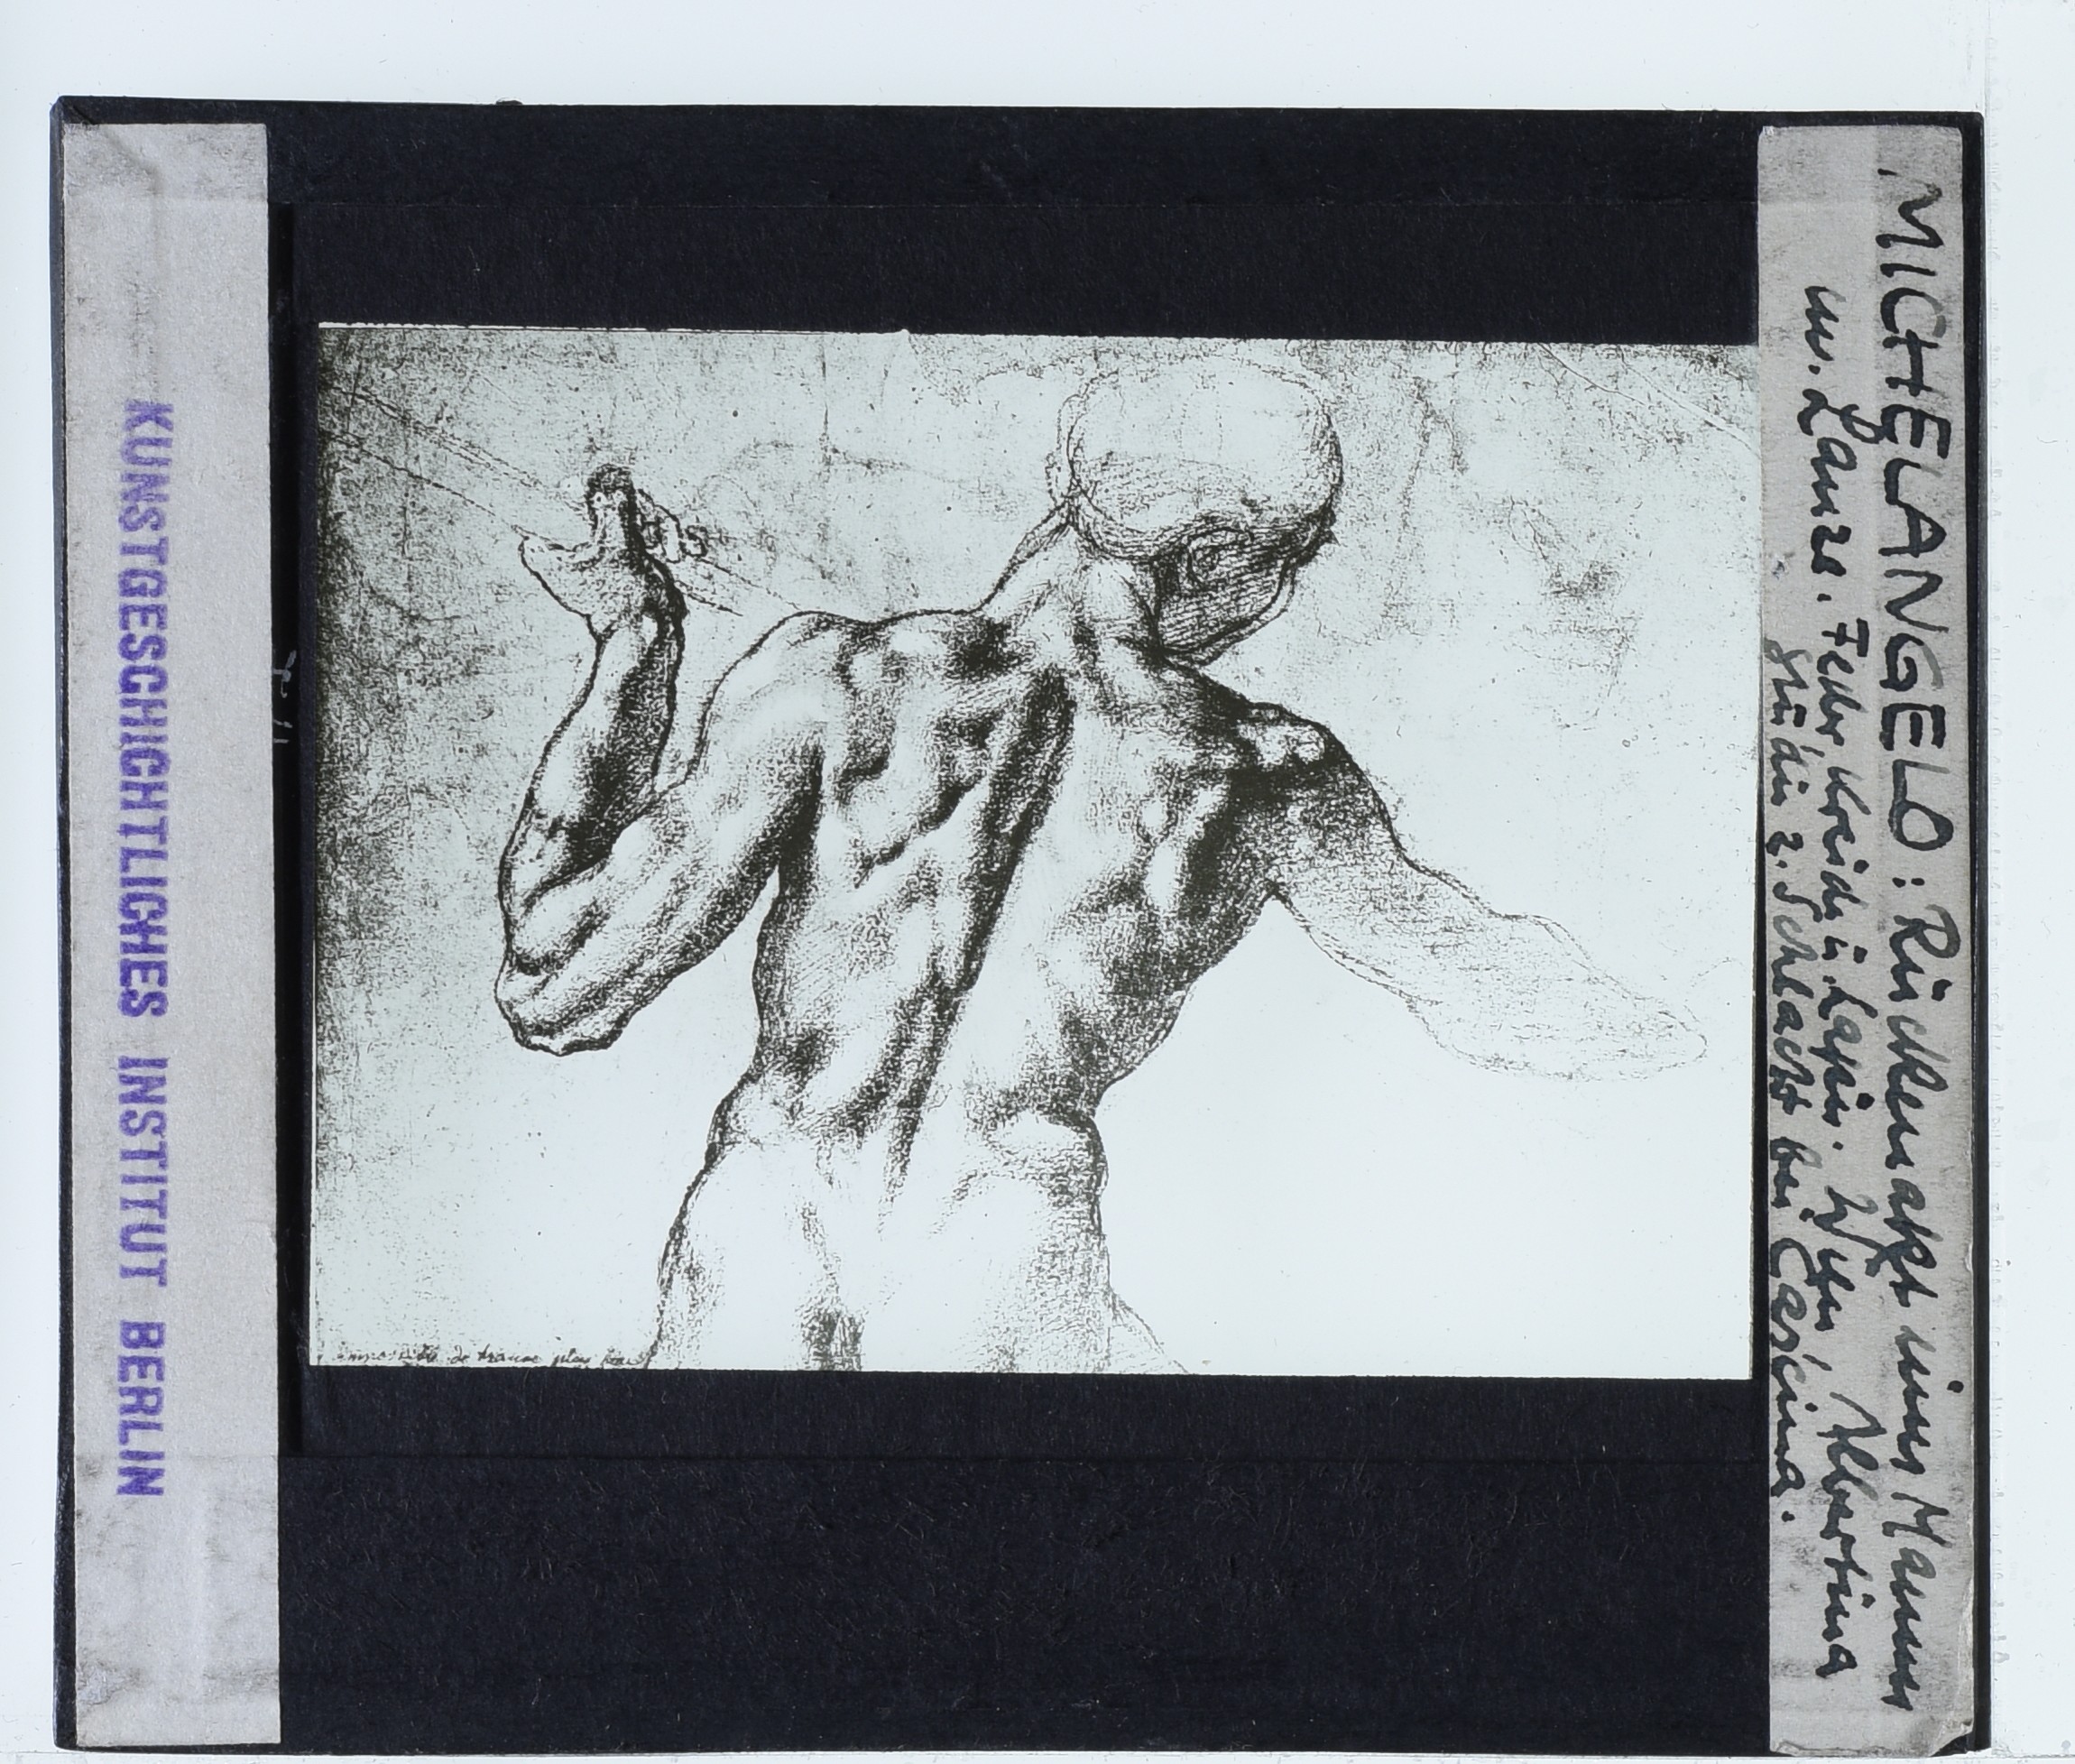 KUNSTGESCHICHTLICHES INSTITUT BERLIN
MICHELANGELO: Rückenakt eines Mannes
m. Lanze. Feder, Kreide u. Wien, Albertina
Studie z. Schlacht bei Cascina.